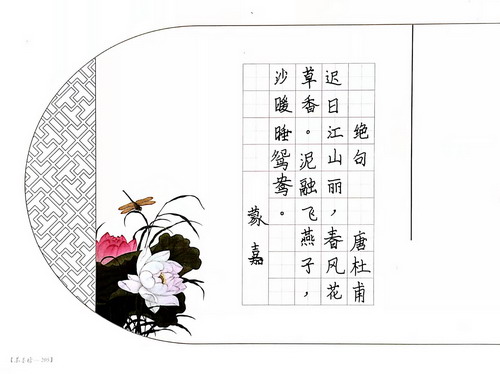 绝句 唐杜甫
迟日江山丽，春风花
草香。泥融飞燕子，
沙暖睡鸳鸯。
嘉